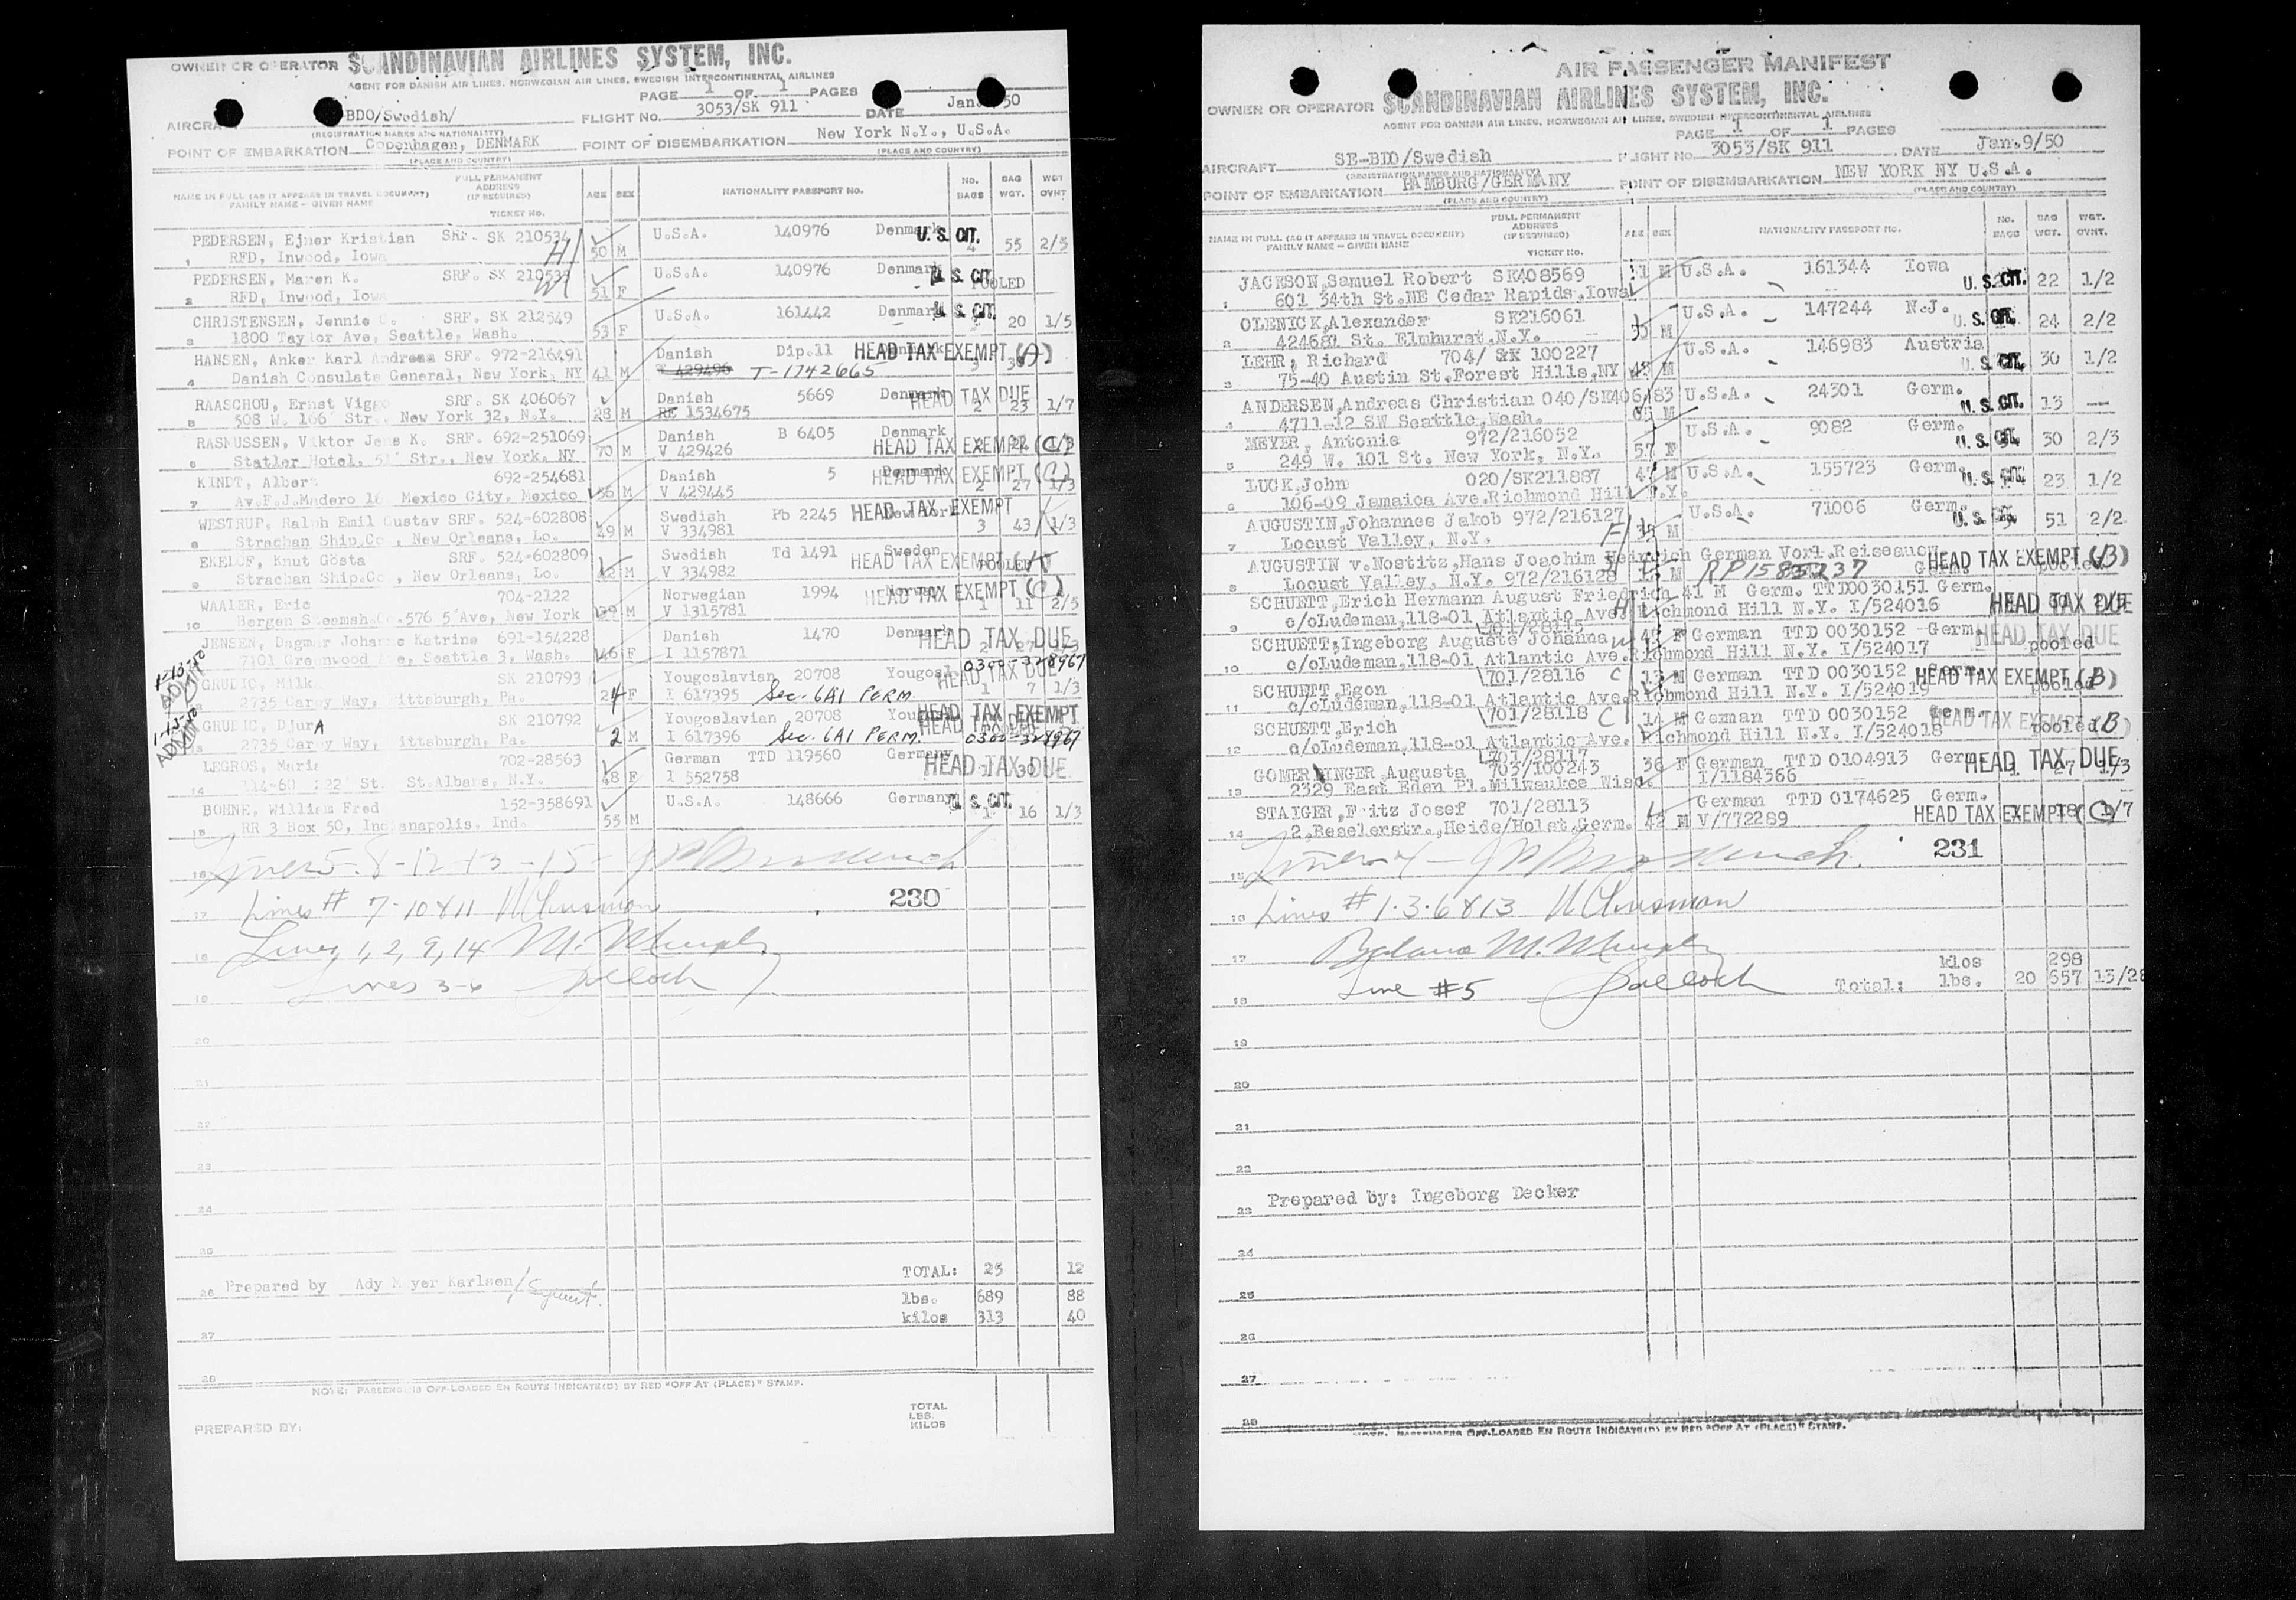 OWNER OR OPERATOR SCANDINAVIAN AIRLINES SYSTEM, INC.
AGENT FOR DANISH AIR LINES, NORWEGIAN AIR LINES, SWEDISH INTERCONTINENTAL AIRLINES
PAGE 1 OF 1 PAGES
AIRCRAFT BDO/Swedish/ FLIGHT NO. 3053/SK 911 DATE Jan 50
(REGISTRATION MARKS AND NATIONALITY)
POINT OF EMBARKATION Copenhagen, DENMARK POINT OF DISEMBARKATION New York N.Y., U.S.A.
(PLACE AND COUNTRY) (PLACE AND COUNTRY)
NAME IN FULL (AS IT APPEARS IN TRAVEL DOCUMENT) FAMILY NAME - GIVEN NAME FULL PERMANENT ADDRESS (IF REQUIRED) TICKET NO. AGE SEX NATIONALITY PASSPORT NO. NO. BAGS BAG WGT. WGT OVNT
PEDERSEN, Ejner Kristian SRF. SK 210534 U.S.A. 140976 Denmark U. S. CIT.
1 RFD, Inwood, Iowa 50 M 4 55 2/5
PEDERSEN, Maren K. SRF. SK 210533 U.S.A. 140976 Denmark U. S. CIT.
2 RFD, Inwood, Iowa 51 F POOLED
CHRISTENSEN, Jennie C. SRF. SK 212549 U.S.A. 161442 Denmark U. S. CIT.
3 1800 Taylor Ave, Seattle, Wash. 53 F 20 1/5
HANSEN, Anker Karl Andreas SRF. 972-216491 Danish Dip.11 Denmark HEAD TAX EXEMPT (A)
4 Danish Consulate General, New York, NY 41 M V 429496 T-1742665 3
RAASCHOU, Ernst Viggo SRF. SK 406067 Danish 5669 Denmark HEAD TAX DUE
5 508 W. 166 Str., New York 32, N.Y. 28 M RE 1534675 2 23 1/7
RASMUSSEN, Viktor Jens K. SRF. 692-251069 Danish B 6405 Denmark
6 Statler Hotel, Str., New York, NY 70 M V 429426 HEAD TAX EXEMPT (C)
KINDT, Albert 692-254681 Danish 5 Denmark HEAD TAX EXEMPT (C)
7 Av.F.J.Madero 16 Mexico City, Mexico 56 M V 429445 2 27 1/3
WESTRUP, Ralph Emil Gustav SRF. 524-602808 Swedish Pb 2245 New York HEAD TAX EXEMPT
8 Strachan Ship.Co , New Orleans, Lo. 49 M V 334981 3 43 1/3
EKELOF, Knut Gösta SRF. 524-602809 Swedish Td 1491 Sweden
9 Strachan Ship.Co , New Orleans, Lo. 42 M V 334982 HEAD TAX EXEMPT
WAALER, Eric 704-2122 Norwegian 1994 Norway HEAD TAX EXEMPT (C)
10 Bergen Steamsh.Co.576 5'Ave, New York 39 M V 1315781 1 11 2/5
JENSEN, Dagmar Johanne Katrine 691-154228 Danish 1470 Denmark HEAD TAX DUE
7101 Greenwood Ave, Seattle 3, Wash. 46 F I 1157871 2 27
GRUDIC, Milka SK 210793 Yougoslavian 20708 Yougosl. 0300-328967 HEAD TAX DUE
2735 Carey Way, Pittsburgh, Pa. 24 F I 617395 Sec. 6A1 PERM. 1 7 1/3
GRUDIC, DjurA SK 210792 Yougoslavian 20708 HEAD TAX EXEMPT
2735 Carey Way, Pittsburgh, Pa. 2 M I 617396 Sec. 6A1 PERM. 0300-328967
LEGROS, Maria 702-28563 German TTD 119560 Germany HEAD TAX DUE
14 114-60 222 St. St.Albans, N.Y. 48 F I 552758 30
BOHNE, William Fred 152-358691 U.S.A. 148666 Germany U. S. CIT.
15 RR 3 Box 50, Indianapolis, Ind. 55 M 1 16 1/3
16 Lines 5-8-12-13-15-
17 Lines # 7-10 & 11 230
18 Lines 1, 2, 9, 14 M. Murphy
19 Lines 3-6
20
21
22
23
24
25
TOTAL: 25 12
26 Prepared by Ady Meyer Karlsen lbs. 689 88
kilos 313 40
27
28
NOTE: PASSENGERS OFF-LOADED EN ROUTE INDICATE(D) BY RED "OFF AT (PLACE)" STAMP.
PREPARED BY: TOTAL LBS. KILOS
AIR PASSENGER MANIFEST
OWNER OR OPERATOR SCANDINAVIAN AIRLINES SYSTEM, INC.
AGENT FOR DANISH AIR LINES, NORWEGIAN AIR LINES, SWEDISH INTERCONTINENTAL AIRLINES
PAGE 1 OF 1 PAGES
AIRCRAFT SE-BDO/Swedish FLIGHT NO. 3053/SK 911 DATE Jan.9/50
(REGISTRATION MARKS AND NATIONALITY)
POINT OF EMBARKATION HAMBURG/GERMANY POINT OF DISEMBARKATION NEW YORK NY U.S.A.
(PLACE AND COUNTRY) (PLACE AND COUNTRY)
NAME IN FULL (AS IT APPEARS IN TRAVEL DOCUMENT) FAMILY NAME - GIVEN NAME FULL PERMANENT ADDRESS (IF REQUIRED) TICKET NO. AGE SEX NATIONALITY PASSPORT NO. NO. BAGS BAG WGT. WGT. OVNT.
JACKSON, Samuel Robert SK408569 M U.S.A. 161344 Iowa
1 601 34th St.NE Cedar Rapids,Iowa U. S. CIT. 22 1/2
OLENICK, Alexander SK216061 U.S.A. 147244 N.J.
2 424681 St. Elmhurst,N.Y. M U. S. CIT. 24 2/2
LEHR, Richard 704/ SK 100227 U.S.A. 146983 Austria
3 75-40 Austin St.Forest Hills,NY M U. S. CIT. 30 1/2
ANDERSEN,Andreas Christian 040/SK406183 U.S.A. 24301 Germ.
4 4711-12 SW Seattle,Wash. 65 M U. S. CIT. 13 --
MEYER, Antonie 972/216052 U.S.A. 9082 Germ.
5 249 W. 101 St. New York, N.Y. 57 F U. S. CIT. 30 2/3
LUCK, John 020/SK211887 M U.S.A. 155723 Germ.
6 106-09 Jamaica Ave.Richmond Hill N.Y. U. S. CIT. 23 1/2
AUGUSTIN,Johannes Jakob 972/216127 U.S.A. 71006 Germ.
7 Locust Valley, N.Y. M U. S. CIT. 51 2/2
AUGUSTIN v.Nostitz,Hans Joachim Heinrich German Vorl.Reiseausw. HEAD TAX EXEMPT (B)
8 Locust Valley, N.Y. 972/216128 M
SCHUETT,Erich Hermann August Friedrich 41 M Germ. TTD0030151 Germ.
9 c/oLudeman,118-01 Atlantic Ave. Richmond Hill N.Y. I/524016 HEAD TAX DUE
SCHUETT,Ingeborg Auguste Johanna F German TTD 0030152 Germ. HEAD TAX DUE
10 c/oLudeman,118-01 Atlantic Ave.Richmond Hill N.Y. I/524017 pooled
SCHUETT,Egon 701/28116 C 13 M German TTD 0030152 HEAD TAX EXEMPT (B)
11 c/oLudeman,118-01 Atlantic Ave.Richmond Hill N.Y. I/524019 pooled
SCHUETT,Erich 701/28118 C M German TTD 0030152 HEAD TAX EXEMPT (B)
12 c/oLudeman,118-01 Atlantic Ave. Richmond Hill N.Y. I/524018 pooled
701/28117
GOMERDINGER, Augusta 703/100243 36 F German TTD 0104913 Germ. HEAD TAX DUE
13 2329 East Eden Pl.Milwaukee Wisc. I/1184366 1 27 1/3
STAIGER,Fritz Josef 701/28113 German TTD 0174625 Germ.
14 2,Beselerstr.,Heide/Holst,Germ. 42 M V/772289 HEAD TAX EXEMPT (C)
15 231
16 Lines # 1.3.6 & 13
17 Balance M. Murphy kios 298
18 Line #5 Total: lbs. 20 657 13/28
19
20
21
22
23 Prepared by: Ingeborg Decker
24
25
26
27
28
NOTE: PASSENGERS OFF-LOADED EN ROUTE INDICATE(D) BY RED "OFF AT (PLACE)" STAMP.